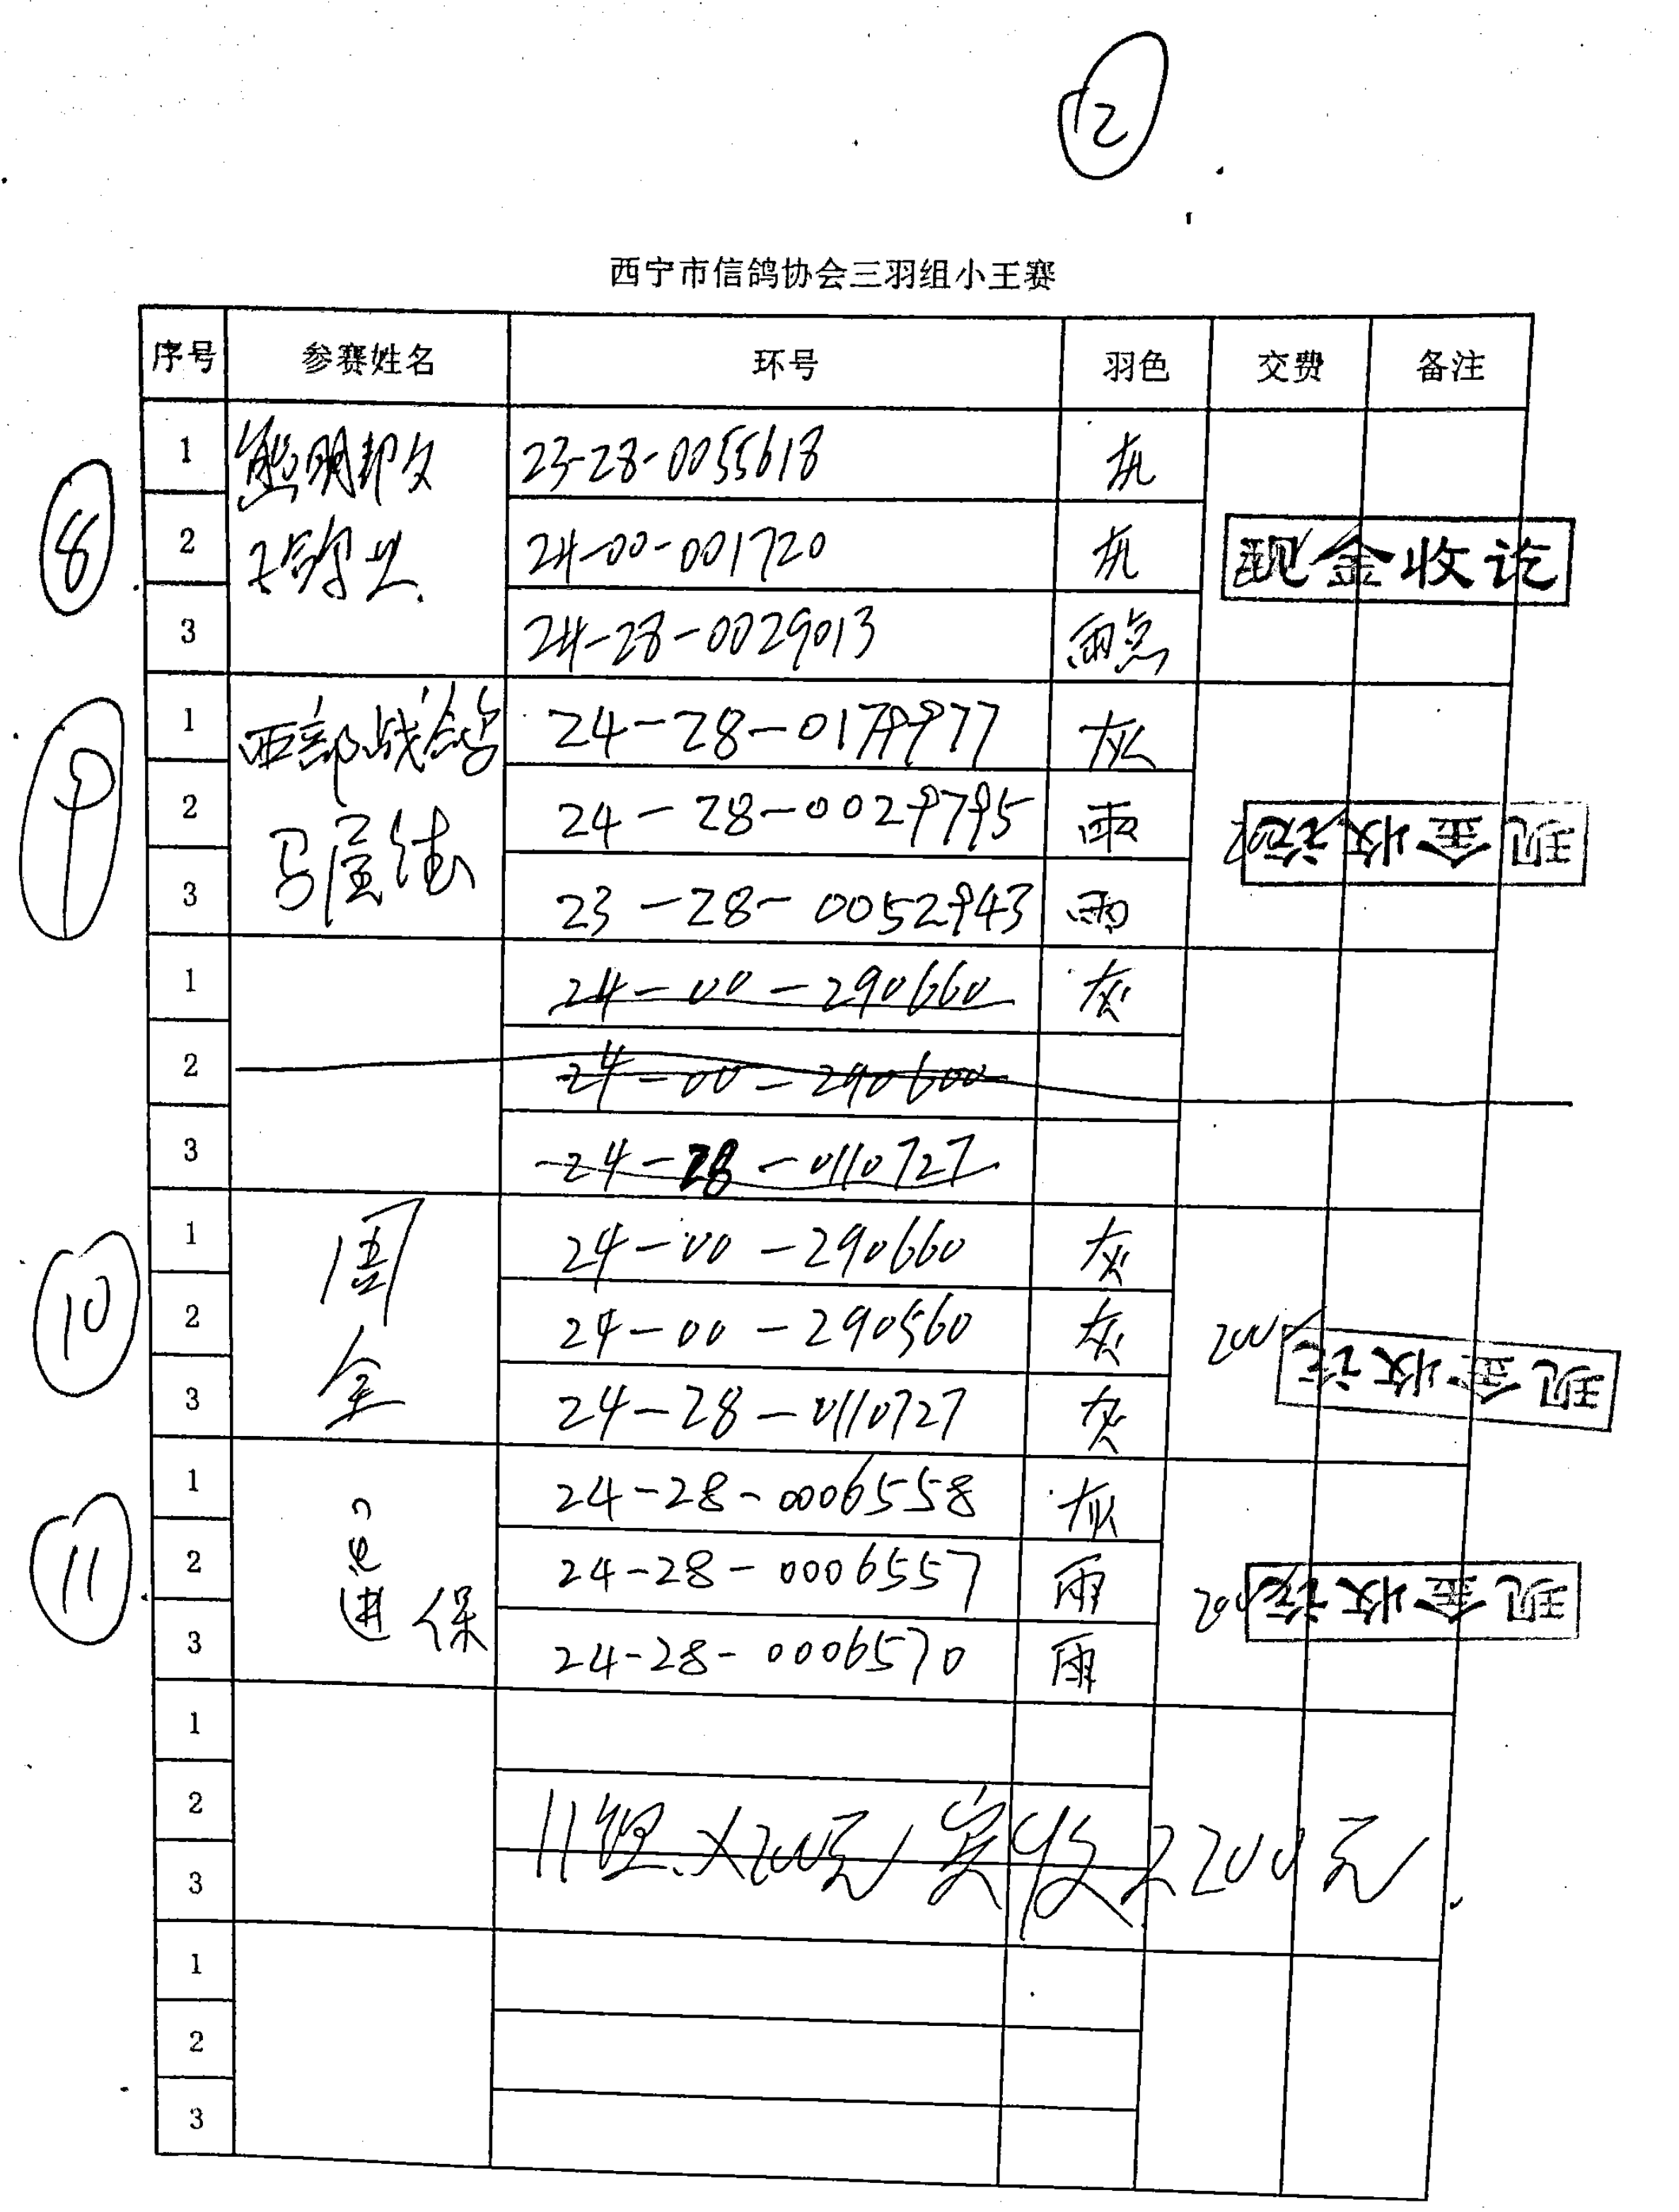 12
西宁市信鸽协会三羽组小王赛
序号 参赛姓名 环号 羽色 交费 备注
8
1 熊明邦 23-28-0055618 灰
2 24-00-001720 灰 现金收讫
3 24-28-0029013 雨点
9
1 西部战鸽 24-28-0179977 灰
2 马 24-28-0029795 雨 200 现金收讫
3 23-28-0052943 雨
1 24-00-290660 灰
2 24-00-290600
3 24-28-0110727
10
1 周 24-00-290660 灰
2 全 24-00-290560 灰 200 现金收讫
3 24-28-0110727 灰
11
1 24-28-0006558 灰
2 进保 24-28-0006557 雨 200 现金收讫
3 24-28-0006570 雨
1
2 11组×200元 实收2200元
3
1
2
3